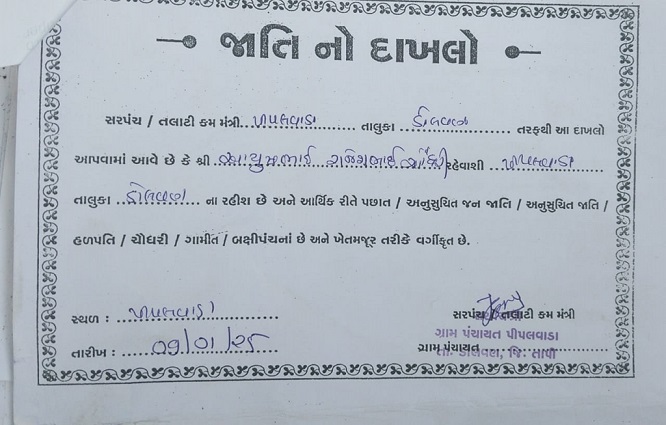 જાતિ નો દાખલો
સરપંચ / તલાટી કમ મંત્રી પીપલવાડા તાલુકા ડોલવણ તરફથી આ દાખલો
આપવામાં આવે છે કે શ્રી રાજેશભાઈ ચૌધરી રહેવાશી પીપલવાડા
તાલુકા ડોલવણ ના રહીશ છે અને આર્થિક રીતે પછાત / અનુસુચિત જન જાતિ / અનુસુચિત જાતિ /
હળપતિ / ચૌધરી / ગામીત / બક્ષીપંચનાં છે અને ખેતમજૂર તરીકે વર્ગીકૃત છે.
સ્થળ : પીપલવાડા
સરપંચ / તલાટી કમ મંત્રી
ગ્રામ પંચાયત પીપલવાડા
તારીખ : 09/01/25
ગ્રામ પંચાયત
તા. ડોલવણ, જિ. તાપી